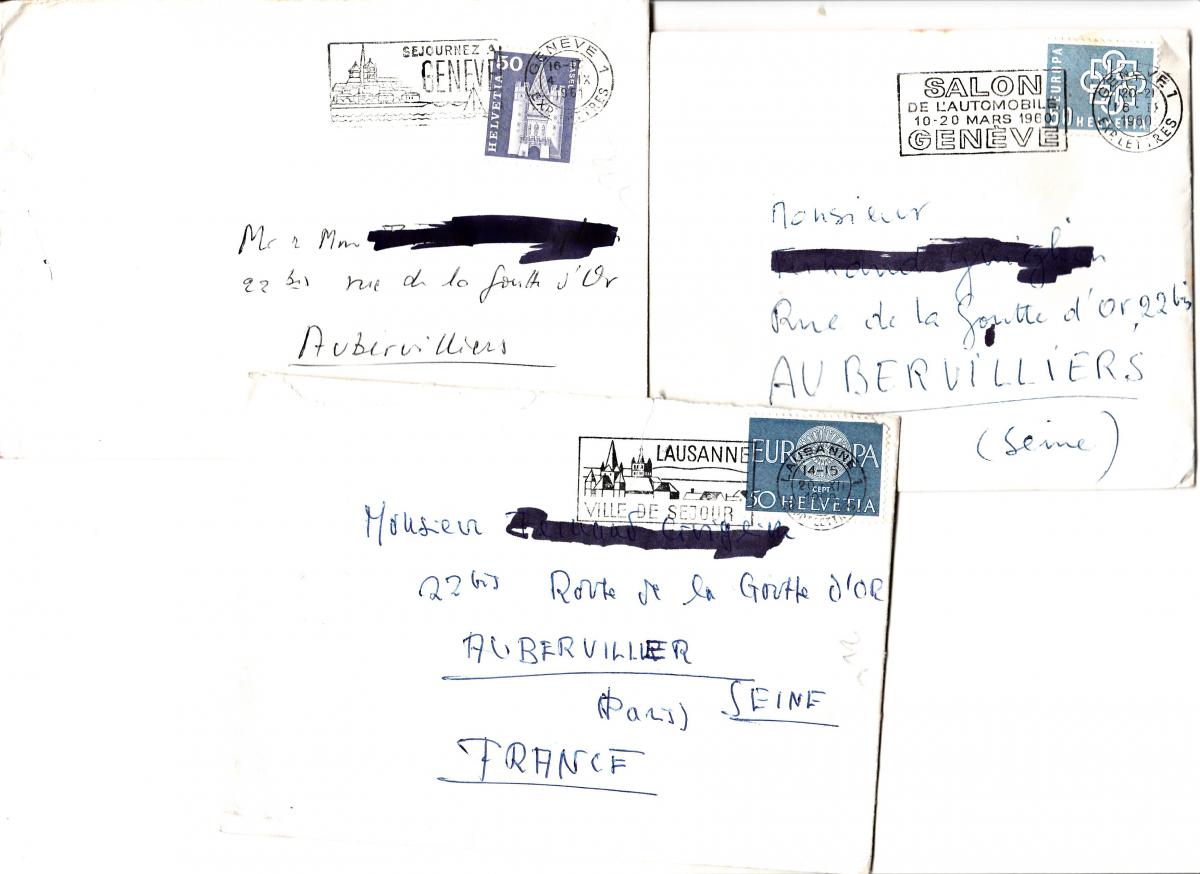 SEJOURNEZ A
GENEVE
HELVETIA 50
GENEVE 1
EXP. LETTRES
Mr & Mme
22 bis rue de la Goutte d'Or
Aubervilliers
SALON
DE L'AUTOMOBILE
10-20 MARS 1960
GENEVE
EUROPA
50 HELVETIA
GENEVE 1
20-21
1960
EXP. LETTRES
Monsieur
Rue de la Goutte d'Or, 22 bis
AUBERVILLIERS
(Seine)
LAUSANNE
VILLE DE SEJOUR
EUROPA
CEPT
50 HELVETIA
LAUSANNE 1
14-15
Monsieur
22 bis Route de la Goutte d'OR
AUBERVILLER
(Paris) SEINE
FRANCE